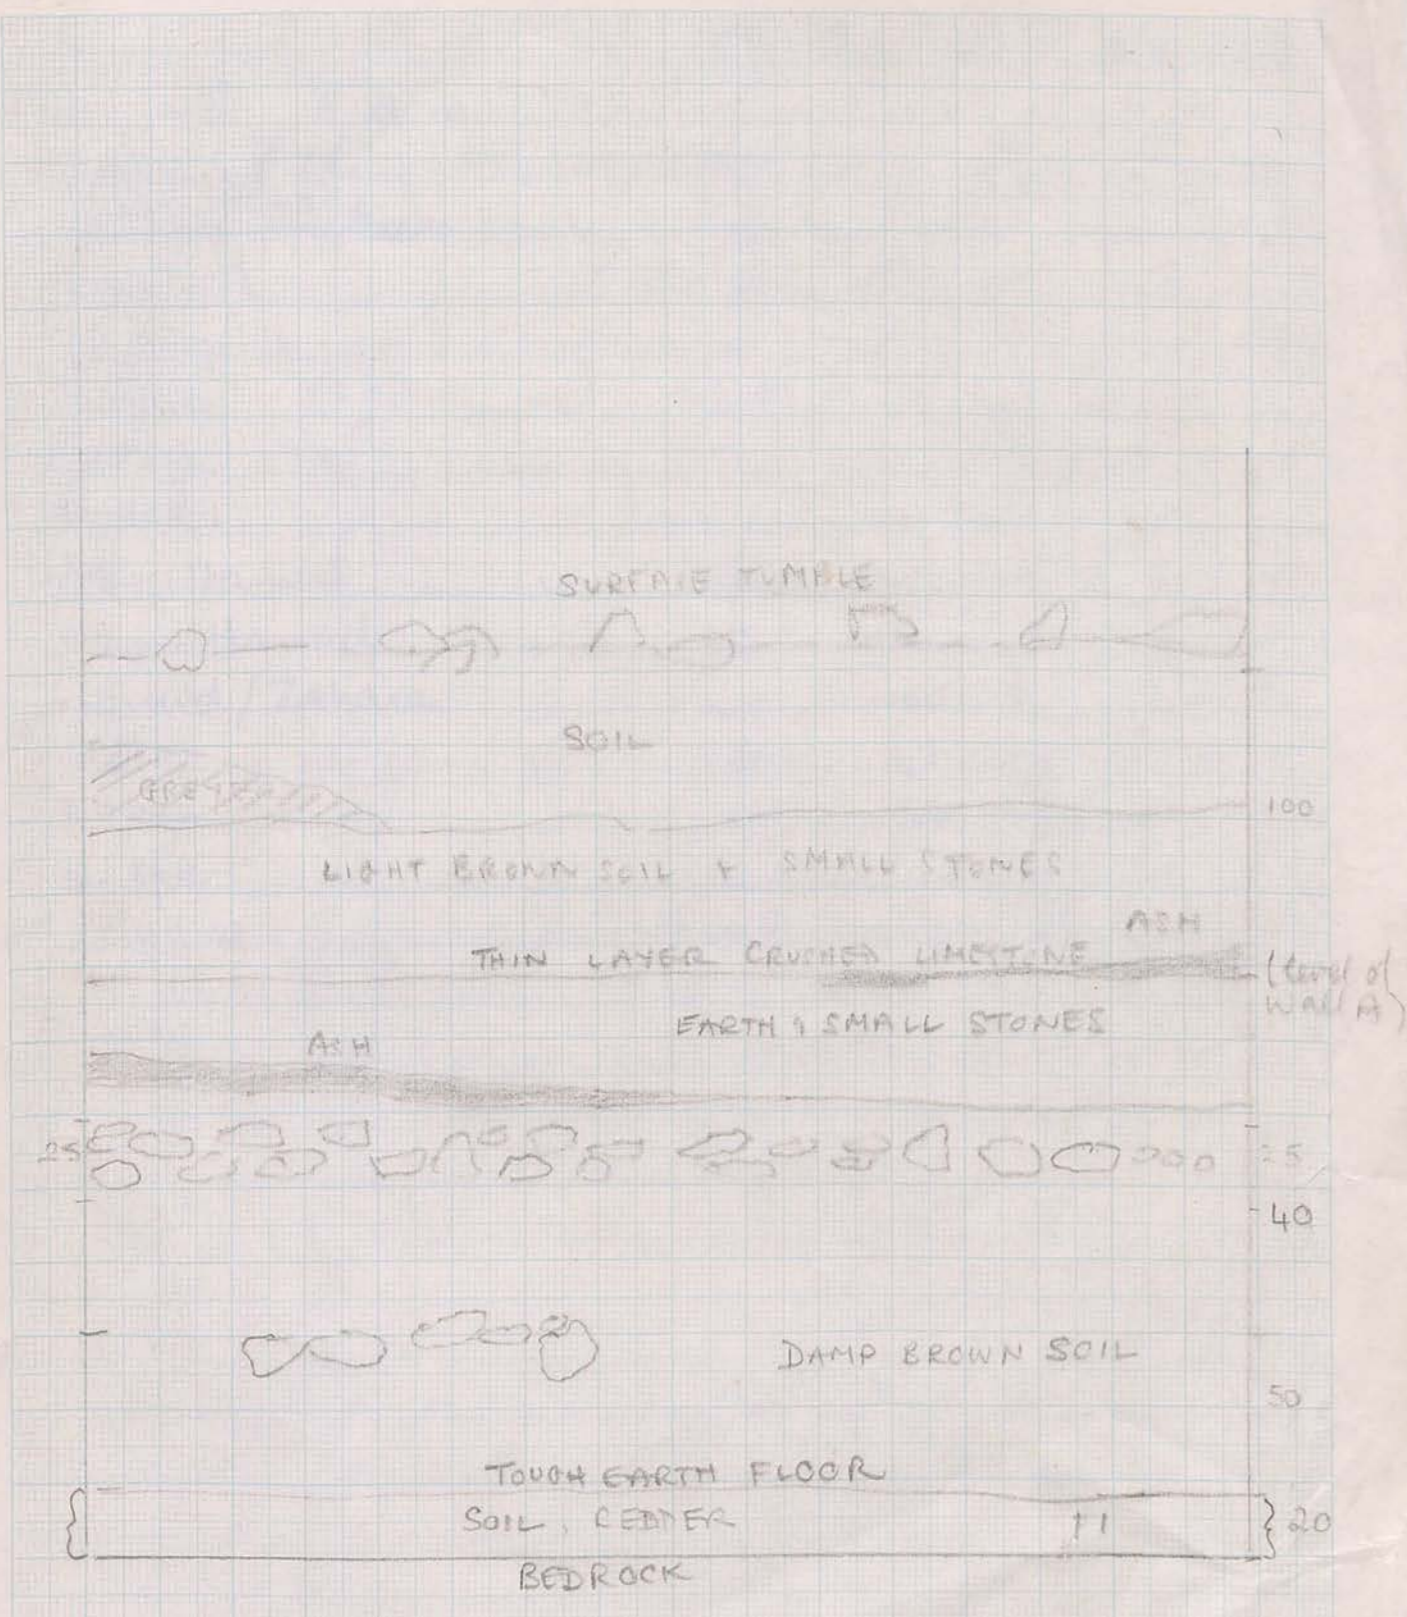 SURFACE TUMBLE
SOIL
100
LIGHT BROWN SOIL + SMALL STONES
ASH
THIN LAYER CRUSHED LIMESTONE
(level of
WALL A)
EARTH & SMALL STONES
ASH
25
25
40
DAMP BROWN SOIL
50
TOUGH EARTH FLOOR
SOIL, REDDER
20
BEDROCK